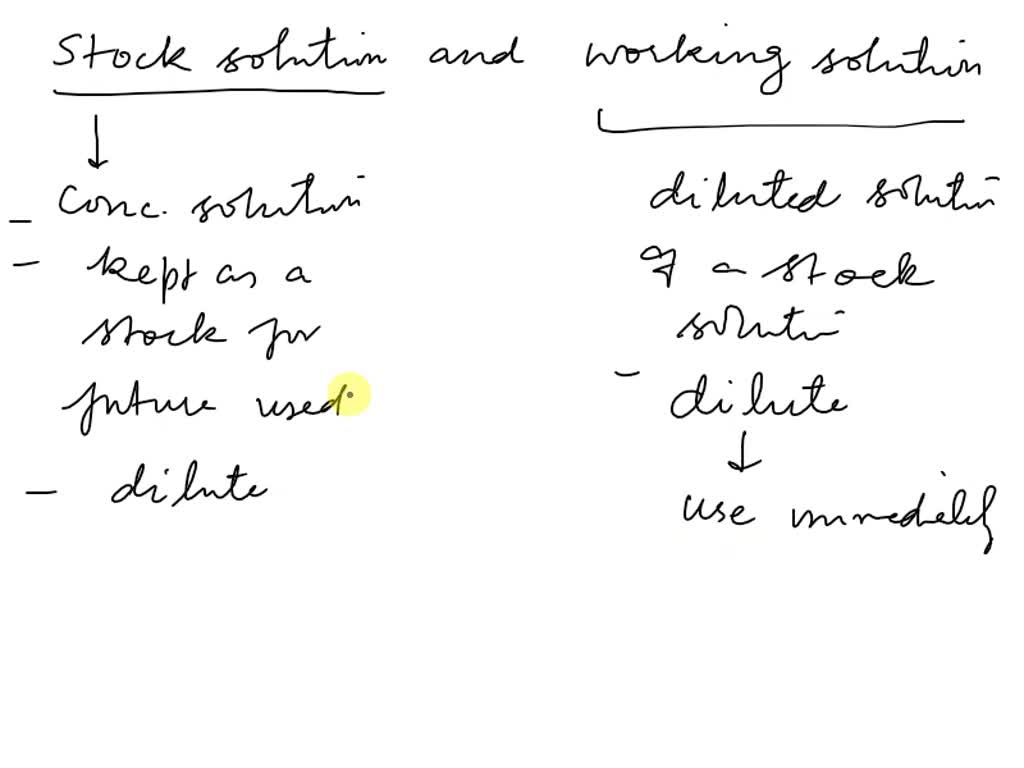 Stock solution and working solution
Conc. solution
- kept as a
stock for
future used
- dilute
diluted solution
of a stock
solution
- dilute
use immediately